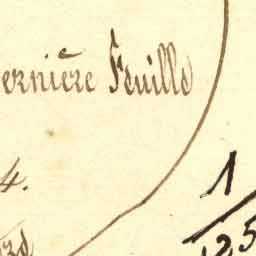 ernière Feuille
4.
1/125